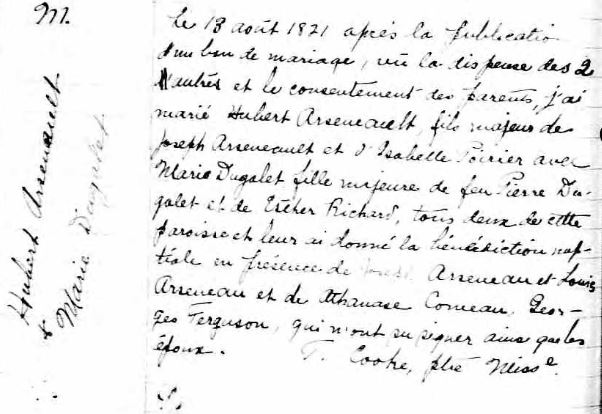 M.
Hubert Arseneault
& Marie Dugalet
le 13 août 1821 après la publication
d'un ban de mariage, vu la dispense des 2
d'autres et le consentement des parents, j'ai
marié Hubert Arseneault, fils majeur de
Joseph Arseneault et d'Isabelle Poirier avec
Marie Dugalet fille majeure de feu Pierre Du-
galet et de Esther Richard, tous deux de cette
paroisse et leur ai donné la bénédiction nup-
tiale en présence de Joseph Arseneau et Louis
Arseneau et de Athanase Comeau, Geor-
ges Ferguson, qui n'ont su signer ainsi que les
époux. T. Cooke, ptre Miss^e.